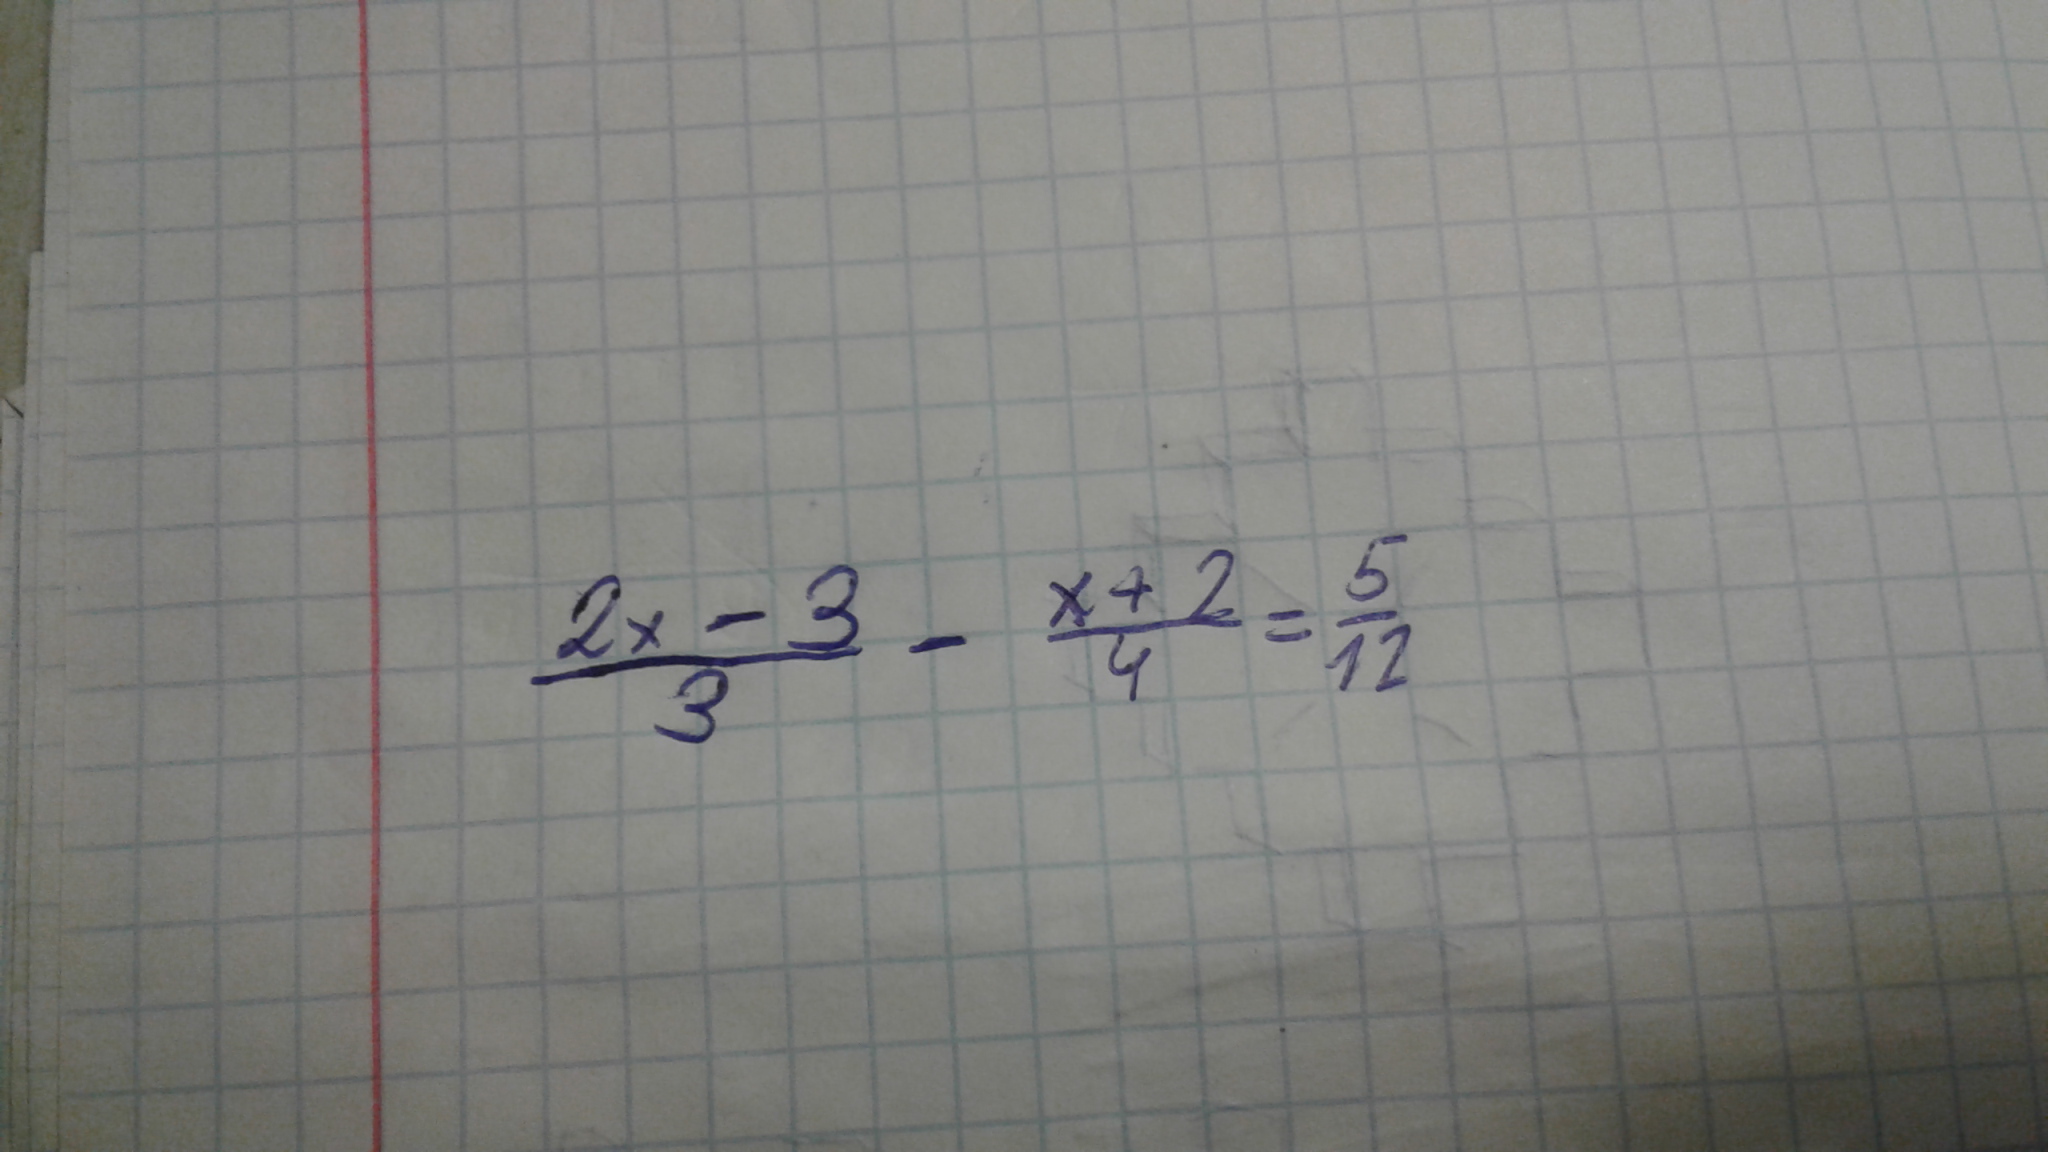 (2x - 3)/3 - (x + 2)/4 = 5/12